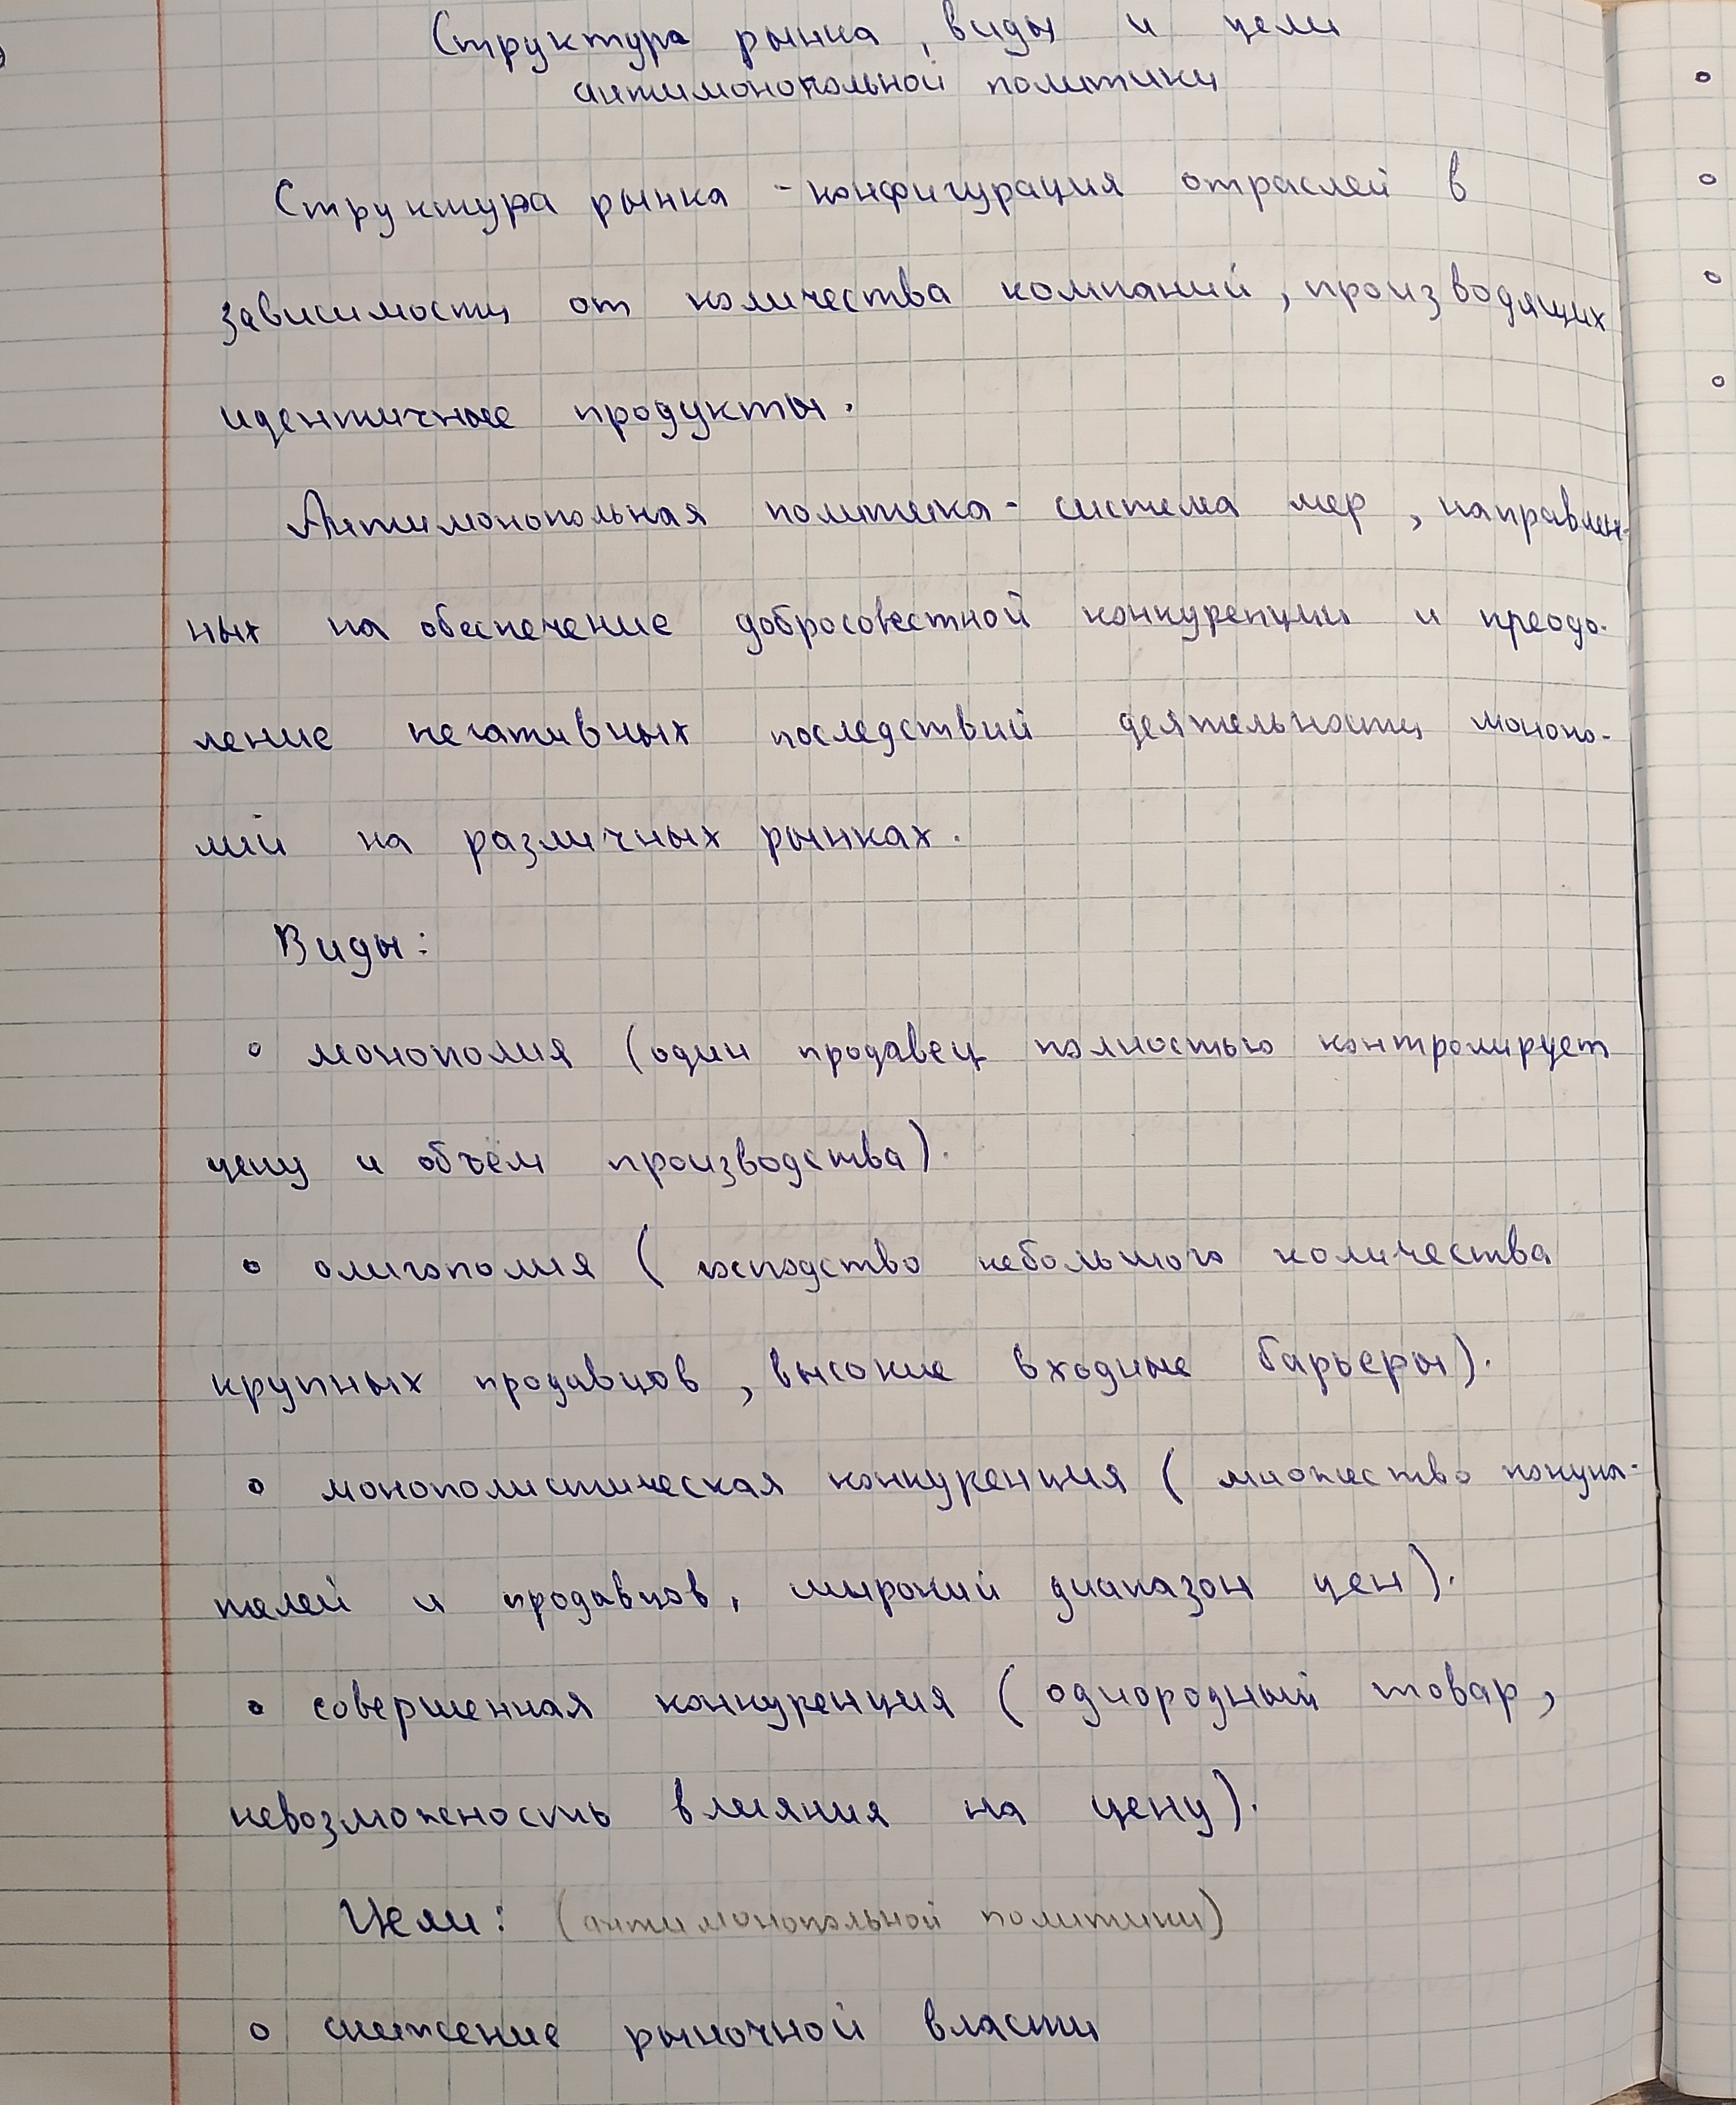 Структура рынка, виды и цели
антимонопольной политики
Структура рынка - конфигурация отраслей в
зависимости от количества компаний, производящих
идентичные продукты.
Антимонопольная политика - система мер, направлен-
ных на обеспечение добросовестной конкуренции и преодо-
ление негативных последствий деятельности монопо-
лий на различных рынках.
Виды:
• монополия (один продавец полностью контролирует
цену и объём производства).
• олигополия (господство небольшого количества
крупных продавцов, высокие входные барьеры).
• монополистическая конкуренция (множество покупа-
телей и продавцов, широкий диапазон цен).
• совершенная конкуренция (однородный товар,
невозможность влияния на цену).
Цели: (антимонопольной политики)
• снижение рыночной власти